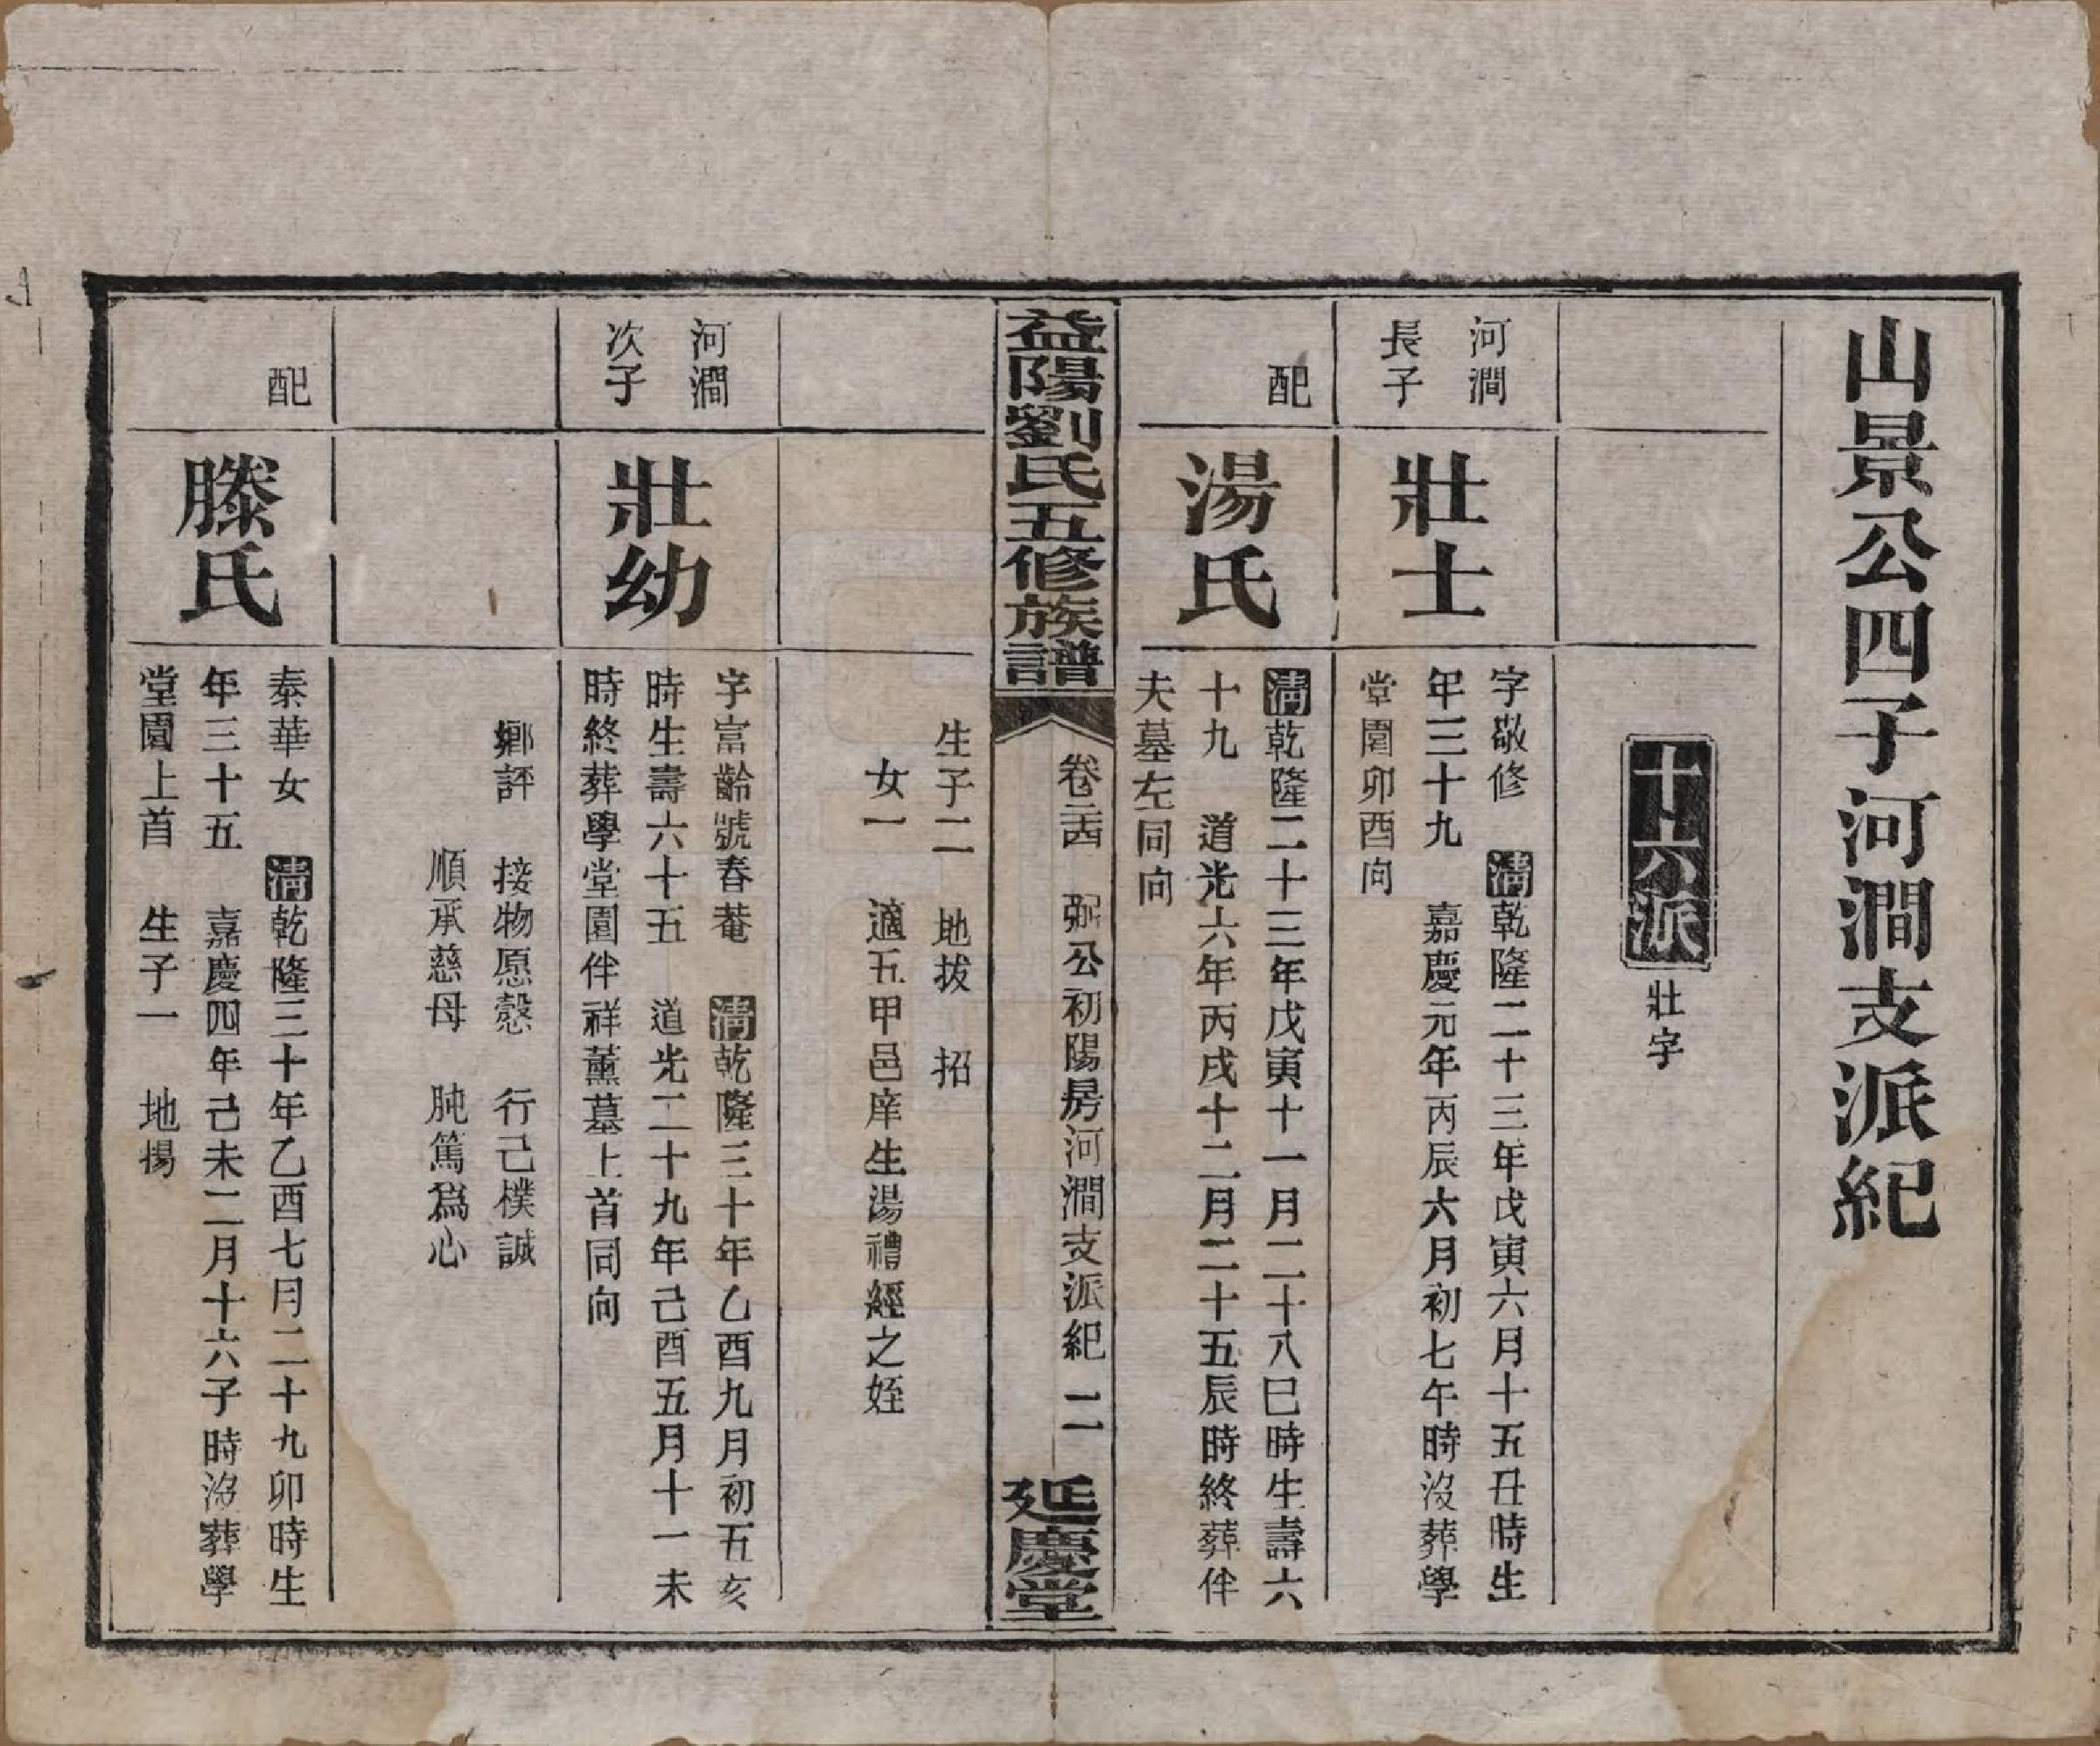 山景公四子河澗支派紀
十六派 壯字
河澗
長子
壯士
字敬修 清乾隆二十三年戊寅六月十五丑時生
年三十九 嘉慶元年丙辰六月初七午時沒葬學
堂園卯酉向
配
湯氏
清乾隆二十三年戊寅十一月二十八巳時生壽六
十九 道光六年丙戌十二月二十五辰時終葬伴
夫墓左同向
益陽劉氏五修族譜
卷二四 弼公初陽房河澗支派紀 二
延慶堂
生子二 地拔 招
女一 適五甲邑庠生湯禮經之姪
河澗
次子
壯幼
字富齡號春菴 清乾隆三十年乙酉九月初五亥
時生壽六十五 道光二十九年己酉五月十一未
時終葬學堂園伴祥薰墓上首同向
鄉評 接物愿慤 行己樸誠
順承慈母 肫篤為心
配
滕氏
泰華女 清乾隆三十年乙酉七月二十九卯時生
年三十五 嘉慶四年己未二月十六子時沒葬學
堂園上首 生子一 地揚